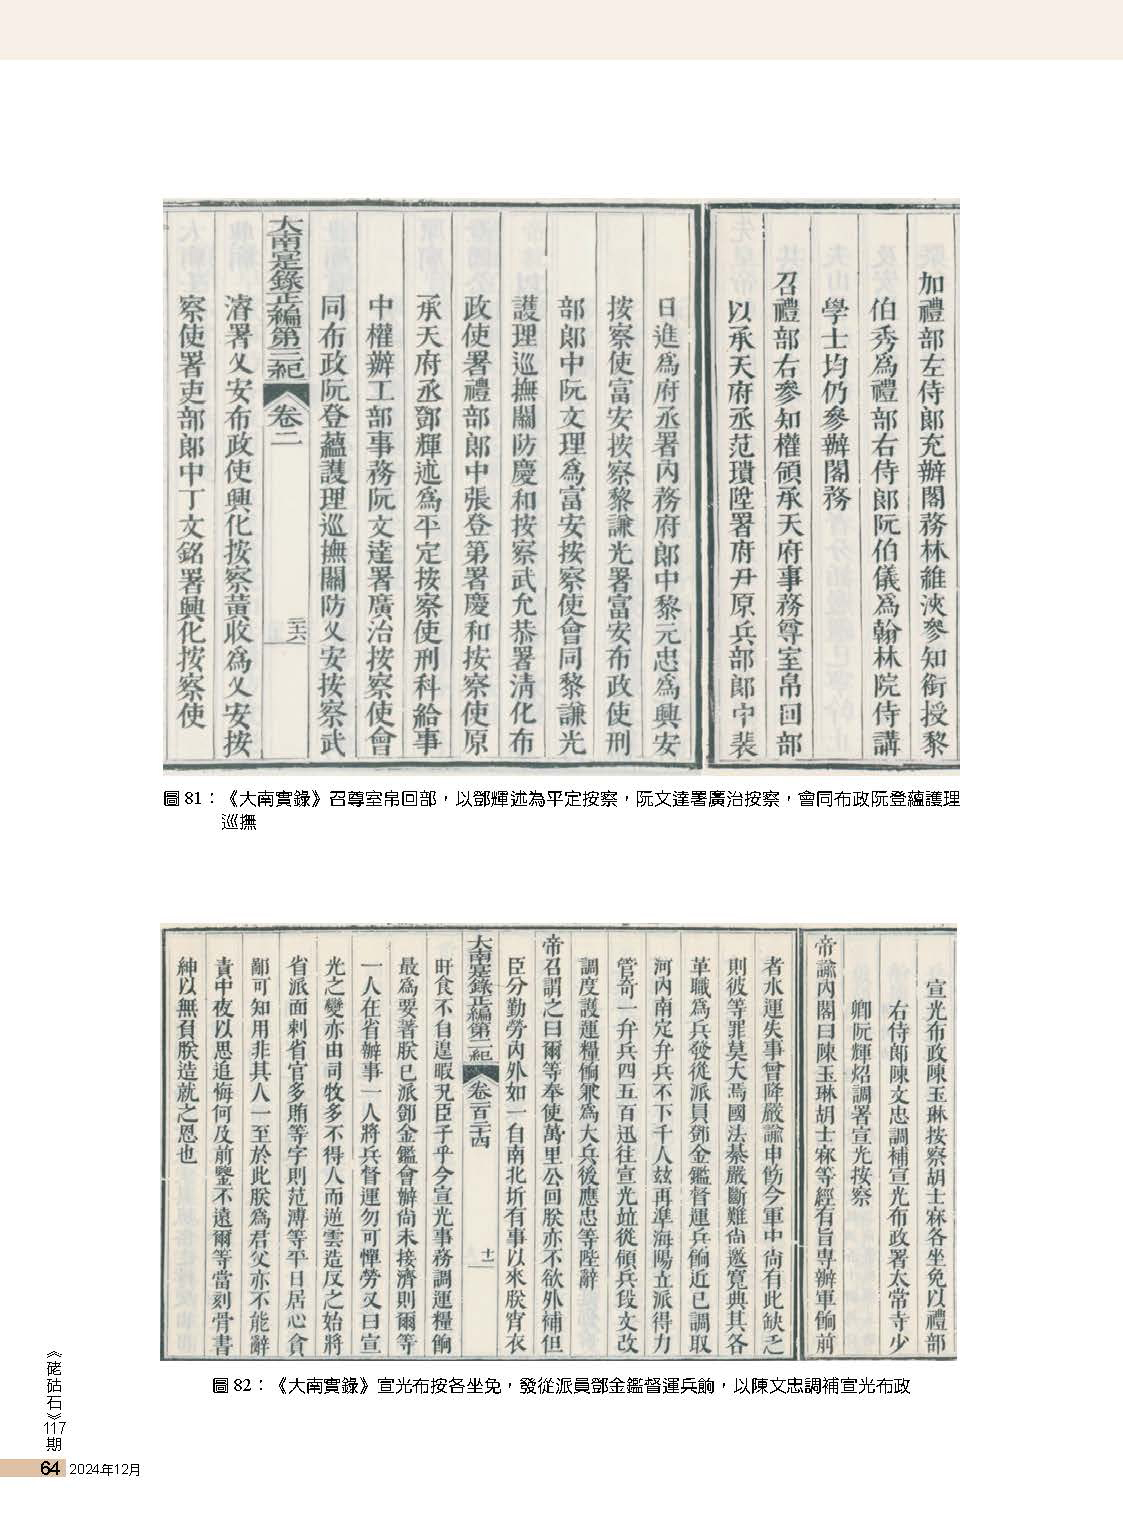 加禮部左侍郎充辦閣務林維浹參知銜授黎
伯秀爲禮部右侍郎阮伯儀爲翰林院侍講
學士均仍參辦閣務
召禮部右參知權領承天府事務尊室帛回部
以承天府丞范璝陞署府尹原兵部郎中裴
日進爲府丞署內務府郎中黎元忠爲興安
按察使富安按察黎謙光署富安布政使刑
部郎中阮文理爲富安按察使會同黎謙光
護理巡撫關防慶和按察武允恭署清化布
政使署禮部郎中張登第署慶和按察使原
承天府丞鄧輝述爲平定按察使刑科給事
中權辦工部事務阮文達署廣治按察使會
同布政阮登蘊護理巡撫關防乂安按察武
大南寔錄正編第三紀 卷二 二十六
濬署乂安布政使興化按察黃收爲乂安按
察使署吏部郎中丁文銘署興化按察使
圖 81：《大南實錄》召尊室帛回部，以鄧輝述為平定按察，阮文達署廣治按察，會同布政阮登蘊護理
巡撫
宣光布政陳玉琳按察胡士㝝各坐免以禮部
右侍郎陳文忠調補宣光布政署太常寺少
卿阮輝炤調署宣光按察
帝諭內閣曰陳玉琳胡士㝝等經有旨專辦軍餉前
者水運失事曾降嚴諭申飭今軍中尚有此缺乏
則彼等罪莫大焉國法綦嚴斷難尚邀寬典其各
革職爲兵發從派員鄧金鑑督運兵餉近已調取
河內南定弁兵不下千人玆再準海陽立派得力
管奇一弁兵四五百迅往宣光竝從領兵段文改
調度護運糧餉兼爲大兵後應忠等陛辭
帝召謂之曰爾等奉使萬里公回朕亦不欲外補但
臣分勤勞內外如一自南北圻有事以來朕宵衣
大南寔錄正編第二紀 卷一百三十四 十一
旰食不自遑暇況臣子乎今宣光事務調運糧餉
最爲要著朕已派鄧金鑑會辦尚未接濟則爾等
一人在省辦事一人將兵督運勿可憚勞又曰宣
光之變亦由司牧多不得人而逆雲造反之始將
省派面刺省官多賄等字則范溥等平日居心貪
鄙可知用非其人一至於此朕爲君父亦不能辭
責中夜以思追悔何及前鑒不遠爾等當刻骨書
紳以無負朕造就之恩也
圖 82：《大南實錄》宣光布按各坐免，發從派員鄧金鑑督運兵餉，以陳文忠調補宣光布政
《硓𥑮石》117期
64 2024年12月